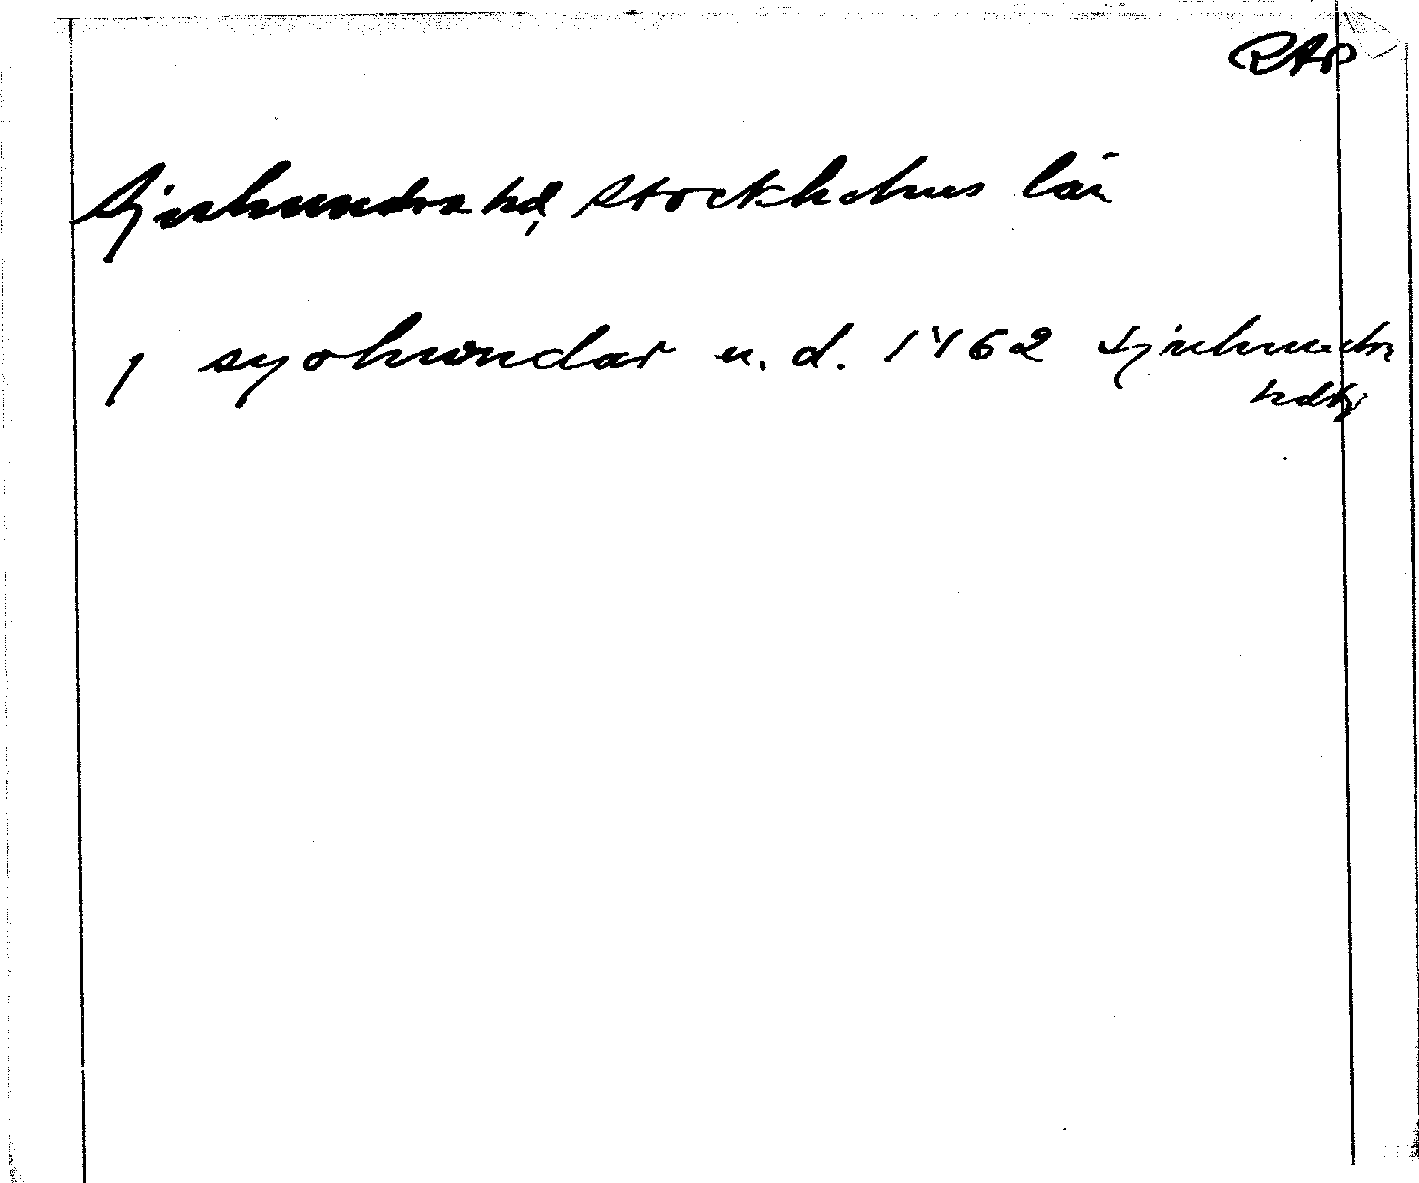 RAP
Sjuhundra hd, Stockholms län
j syohwndar u. d. 1462 Sjuhundra
hdbj